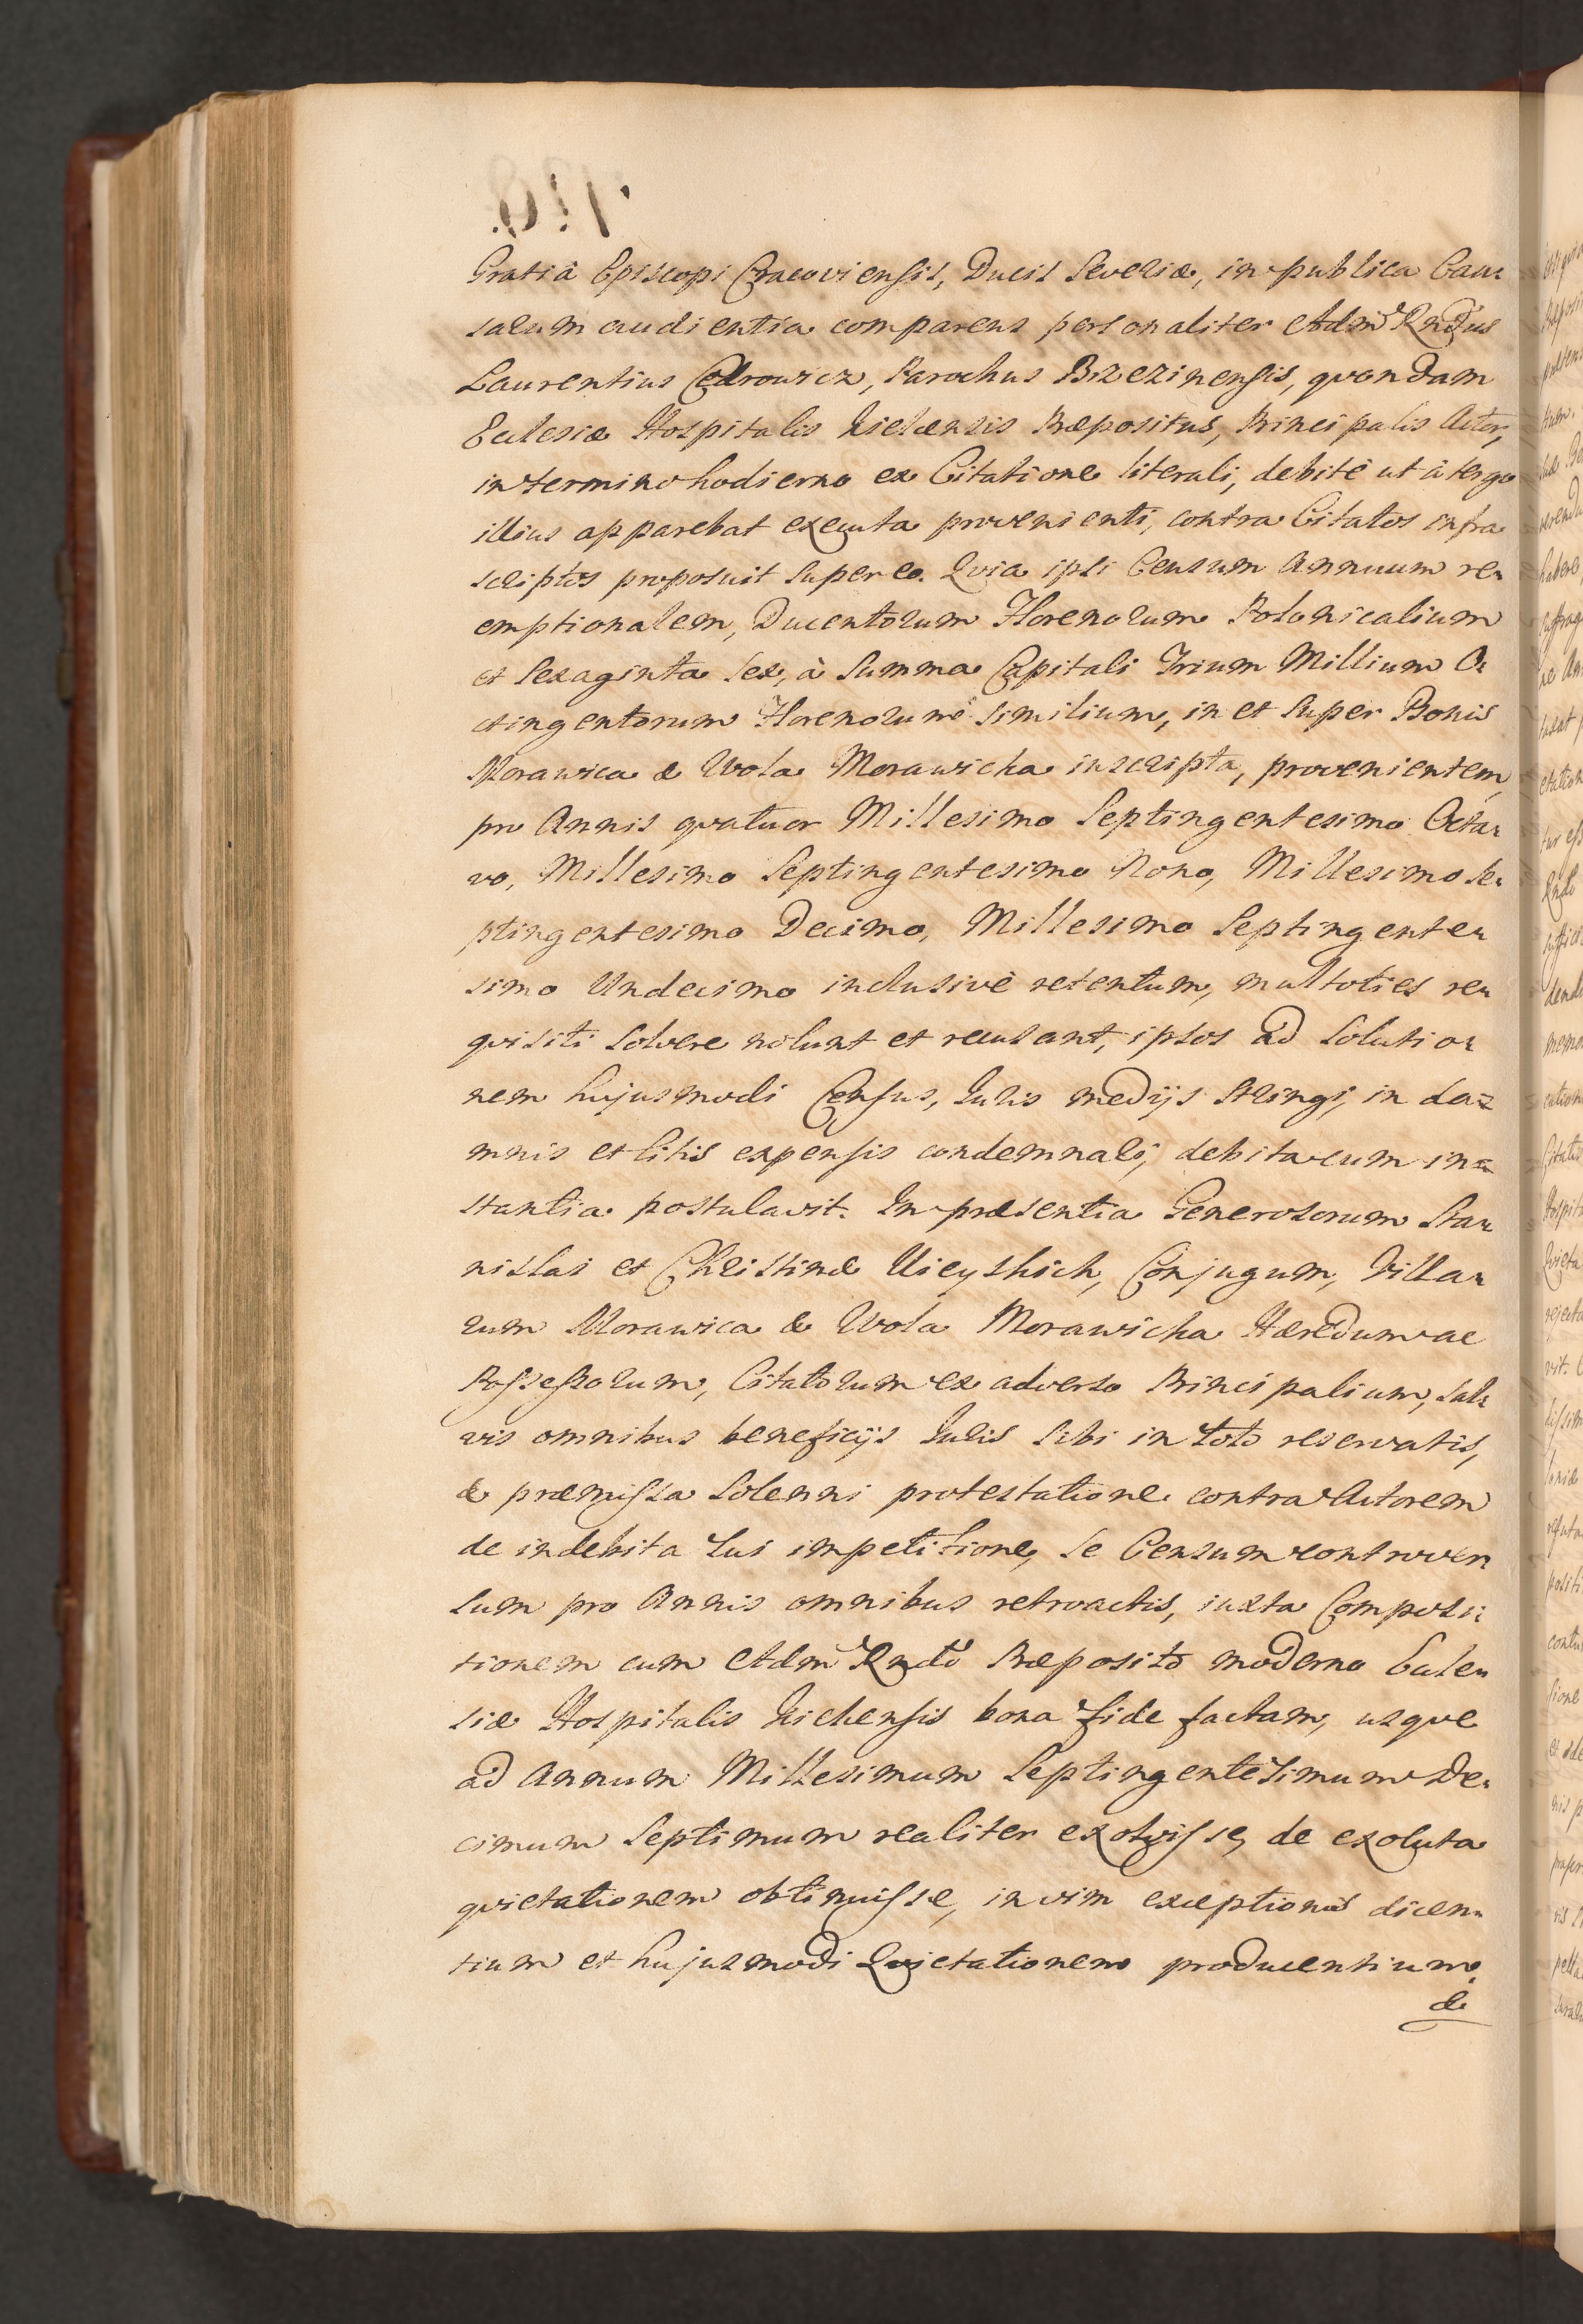 Gratiâ Episcopi Cracoviensis, Ducis Severiæ, in publica Cau:
sarum audientia comparens personaliter Adm Rndus
Laurentius Cedrowicz, Parochus Brzezinensis, quondam
Ecclesiæ Hospitalis Kielcensis Præpositus, Principalis Actor,
in termino hodierno ex Citatione literali, debitè ut à tergo
illius apparebat executa provenienti, contra Citatos infra
scriptos proposuit super eo. Quia ipsi Censum Annuum re:
emptionalem, Ducentorum Florenorum Polonicalium
et Sexaginta Sex, à Summa Capitali Trium Millium O:
ctingentorum Florenorum similium, in et super Bonis
Morawica & Wola Morawicka inscripta, provenientem,
pro Annis quatuor Millesimo Septingentesimo Octa:
vo, Millesimo Septingentesimo Nono, Millesimo Se:
ptingentesimo Decimo, Millesimo Septingente:
simo Undecimo inclusivè retentum, multoties re:
quisiti solvere nolunt et recusant, ipsos ad solutio:
nem hujusmodi Census, Juris medijs stringi, in da=
mnis et litis expensis condemnari, debita cum in=
stantia postulavit. In præsentia Generosorum Sta:
nislai et Christinæ Kicyskich, Conjugum, Villa:
rum Morawica & Wola Morawicka Hæredum ac
Possessorum, Citatorum ex adverso Principalium, sal:
vis omnibus beneficijs Juris sibi in toto reservatis,
& præmissa solenni protestatione contra Actorem
de indebita sui impetitione, se Censum controver:
sum pro Annis omnibus retroactis, iuxta Composi:
tionem cum Adm Rndo Præposito moderno Eccle:
siæ Hospitalis Kielcensis bona fide factam, usque
ad Annum Millesimum Septingentesimum De:
cimum Septimum realiter exolvisse, de exoluta
quietationem obtinuisse, in vim exceptionis dicen:
tium et hujusmodi Quietationem producentium,
&